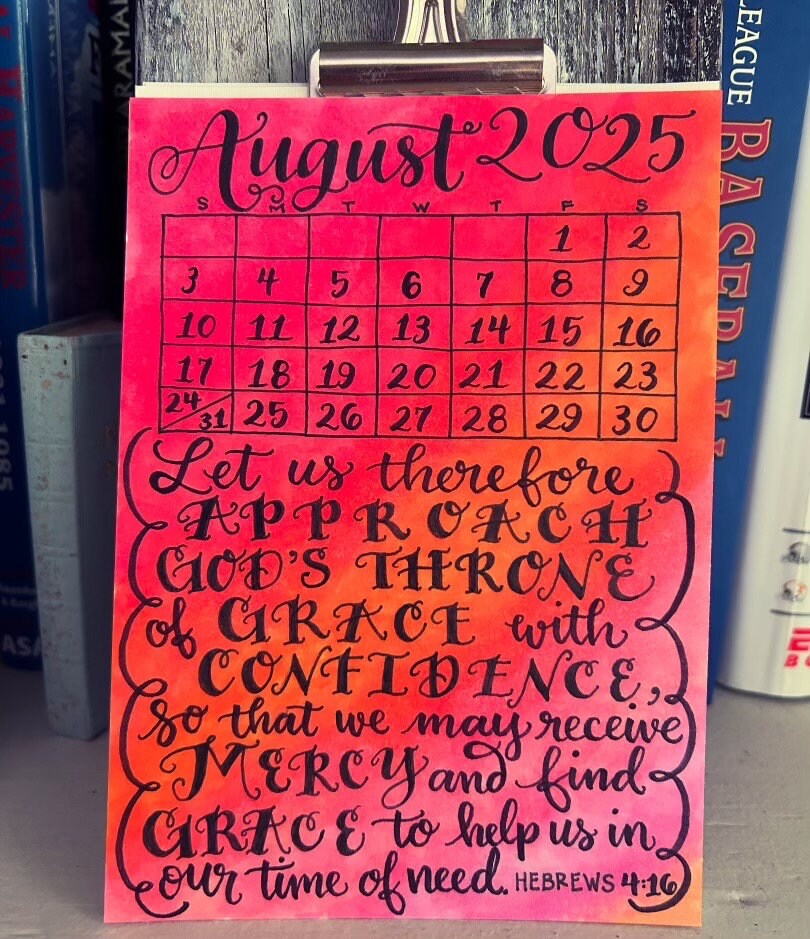 August 2025
S M T W T F S
1 2
3 4 5 6 7 8 9
10 11 12 13 14 15 16
17 18 19 20 21 22 23
24/31 25 26 27 28 29 30
Let us therefore
APPROACH
GOD'S THRONE
of GRACE with
CONFIDENCE,
so that we may receive
MERCY and find
GRACE to help us in
our time of need. HEBREWS 4:16
HARVESTER
LEAGUE
BASEBALL